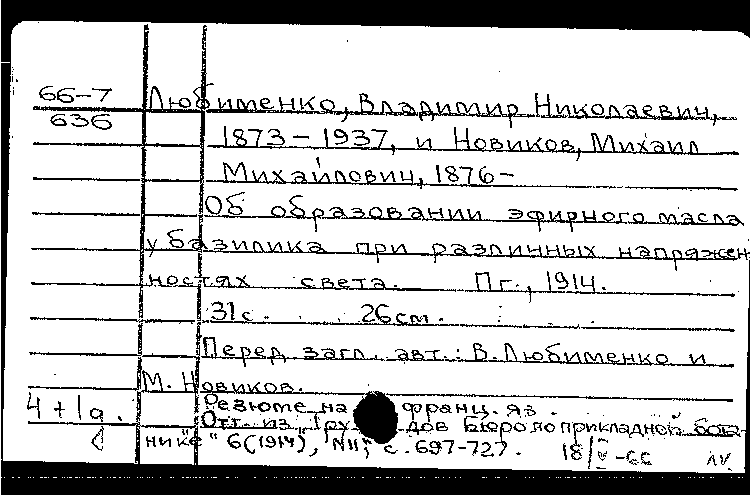 66-7
636
Любименко, Владимир Николаевич,
1873-1937, и Новиков, Михаил
Михайлович, 1876-
Об образовании эфирного масла
у базилика при различных напряжен
ностях света. Пг., 1914.
31с. 26см.
Перед загл. авт.: В. Любименко и
М. Новиков.
Резюме на франц. яз.
4+1д.
Отт. из "Тру дов Бюро по прикладной бота-
нике" 6(1914), N11, с. 697-727. 18/V-66